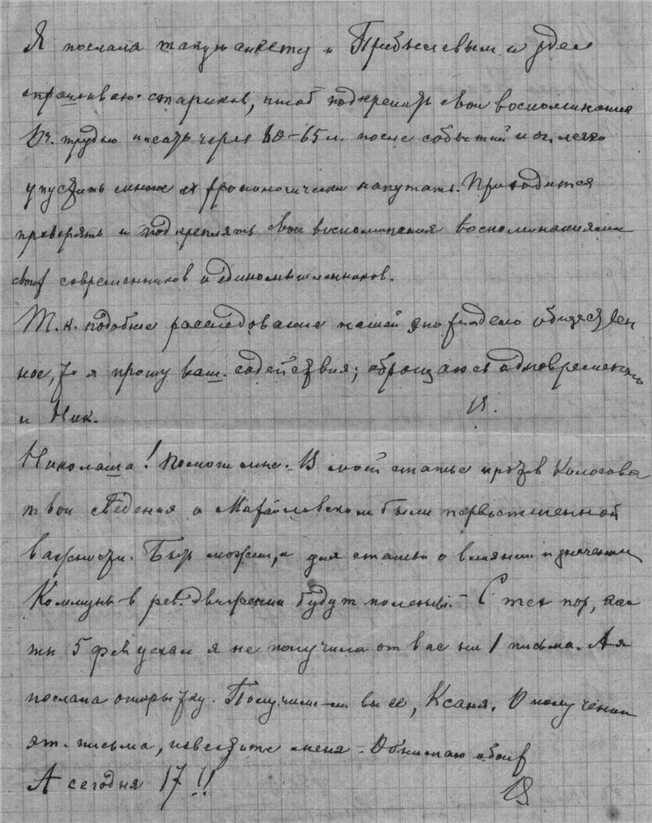 Я послала такую анкету и Прибылевым и здесь
опрашиваю стариков, чтоб подкрепить свои воспоминания
Оч. трудно писать через 60–65 л. после событий и оч. легко
упустить многое и хронологически напутать. Приходится
проверять и подкреплять свои воспоминания воспоминаниями
своих современников и единомышленников.
Т. к. подобные расследование нашей эпохи дело обществен
ное, то я прошу ваш. содействия; обращаюсь одновременно
и Ник. Я.
Николаша! Помоги мне. В моей статье против Колосова
твои сведения о Михайловском были первостепенной
важности. Быть может, и для статьи о влиянии и значении
Коммуны в рев. движении будут полезны. – С тех пор, как
ты 5 фев уехал я не получила от вас ни 1 письма. А я
послала открытку. Получили-ли вы ее, Ксаня. О получении
эт. письма, известите меня – Обнимаю обоих
А сегодня 17!!